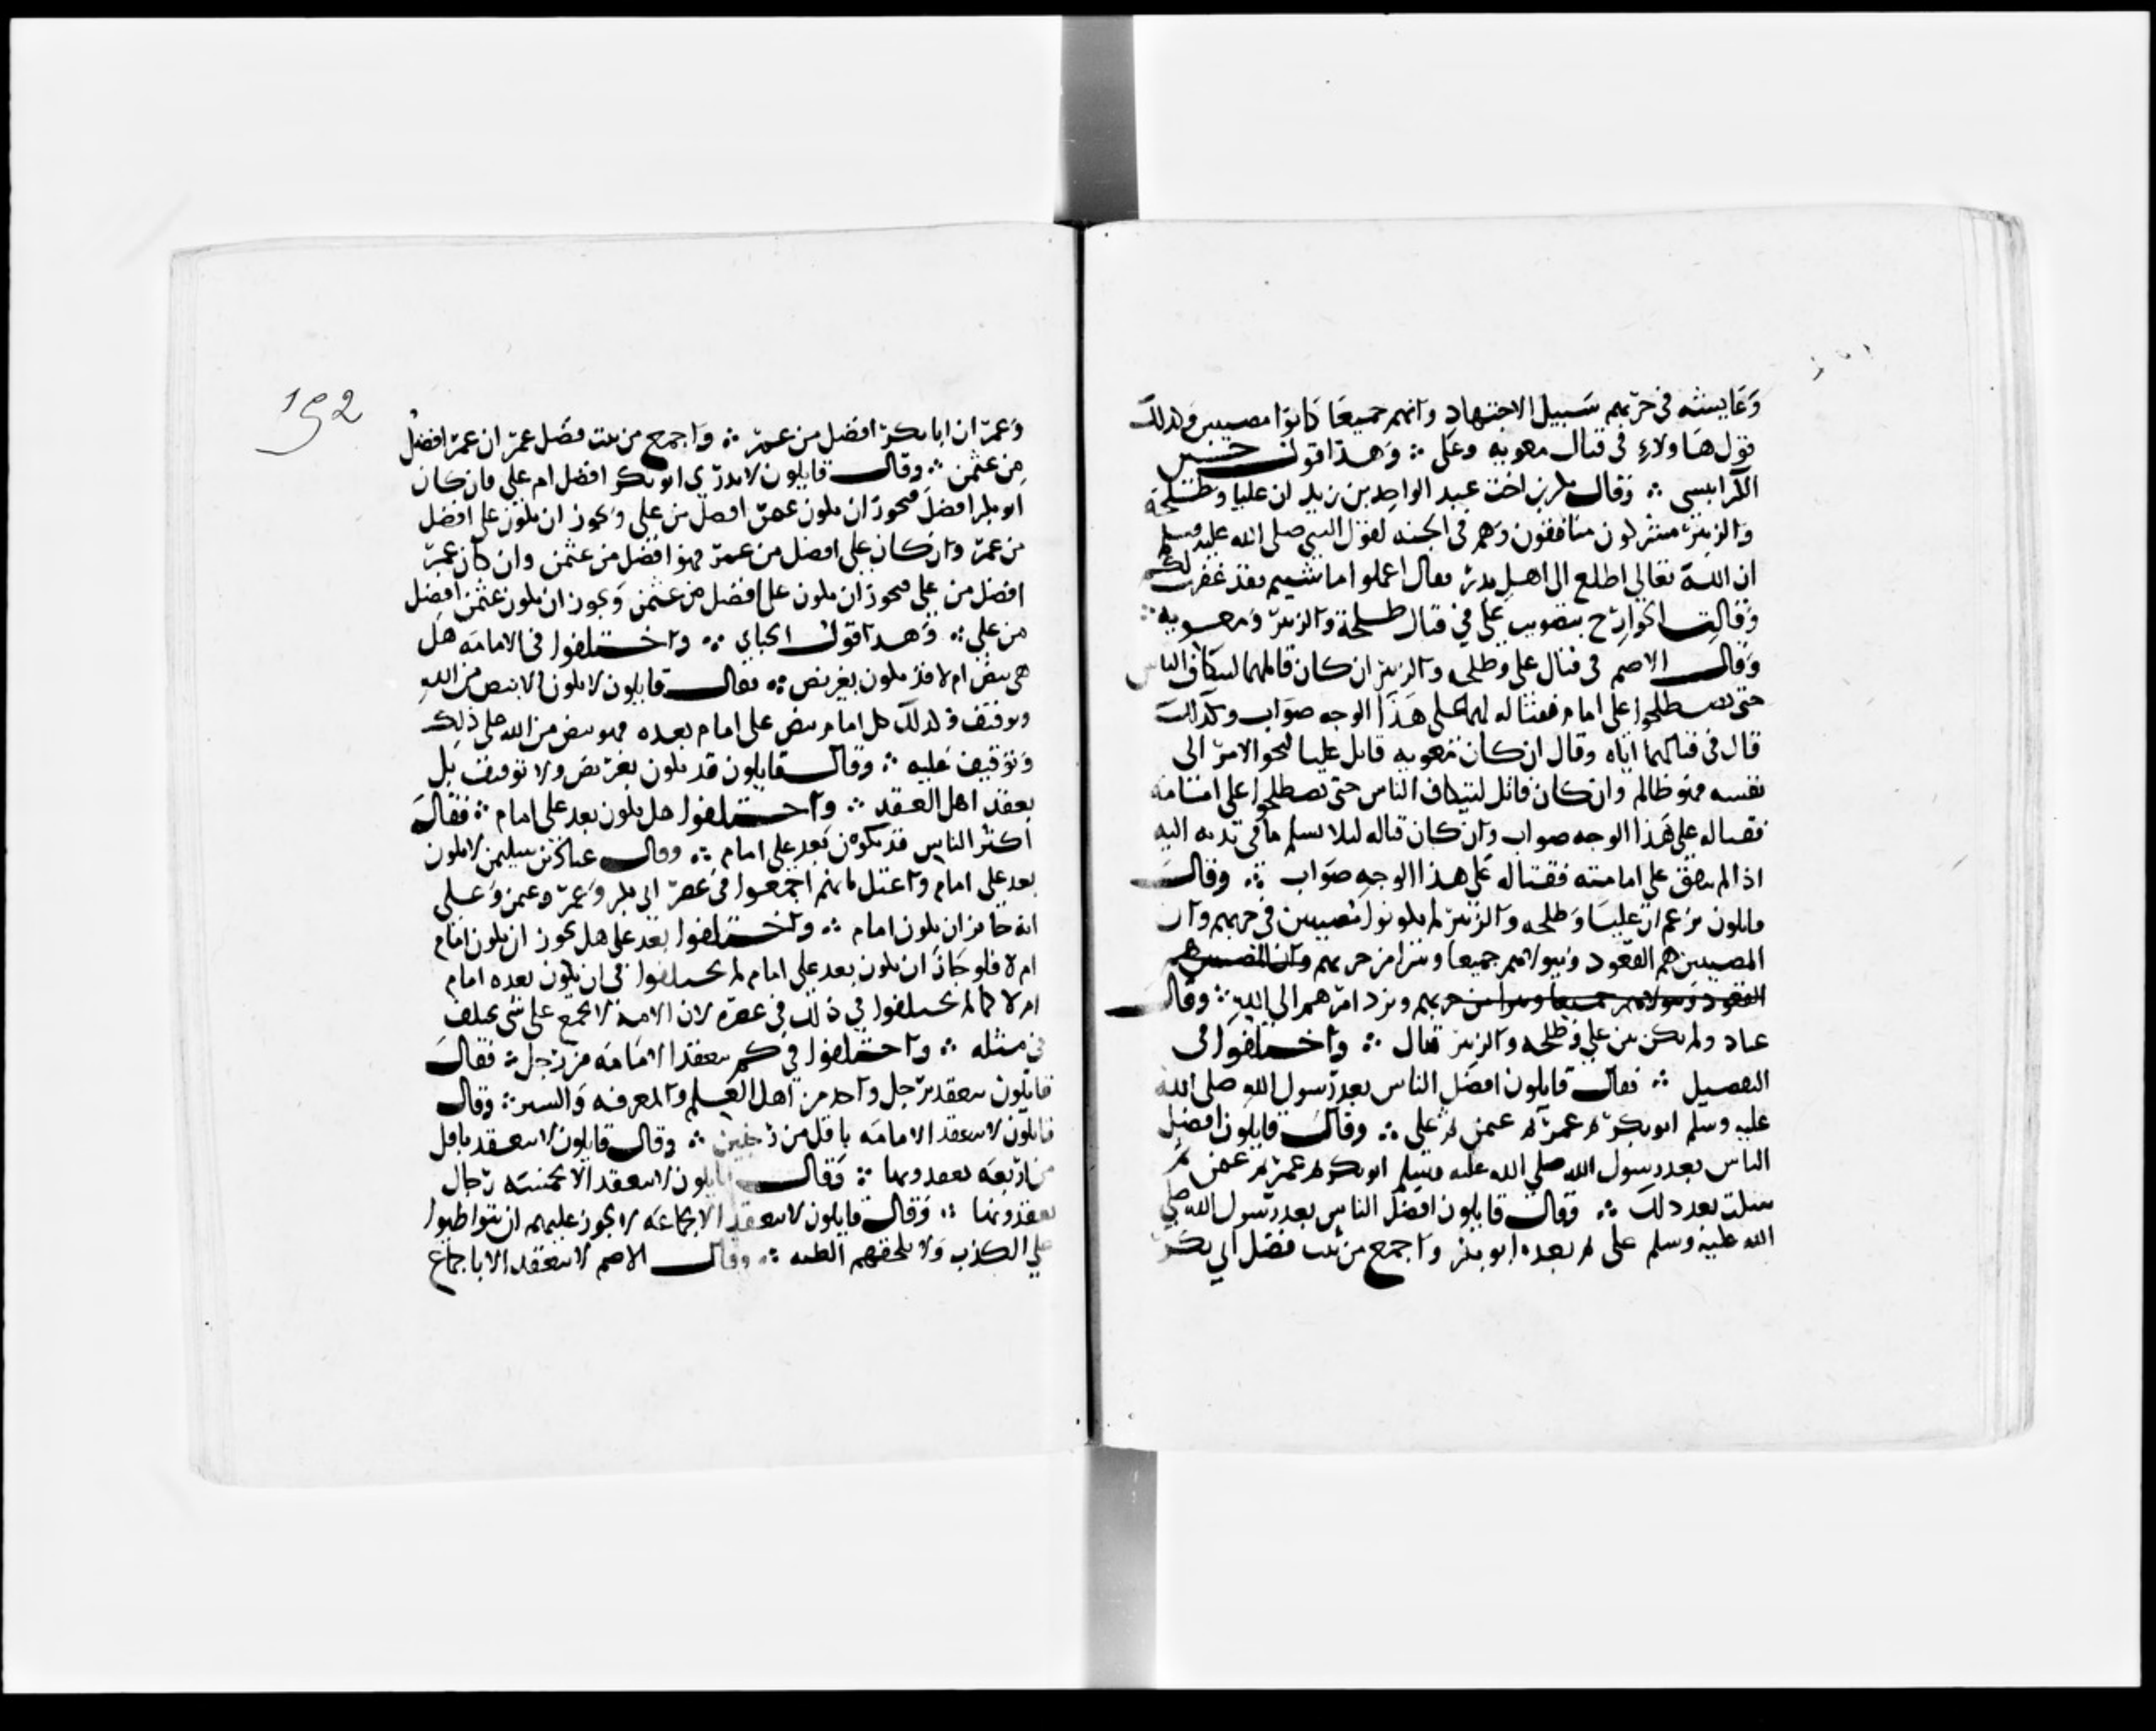 وعايشه في حربهم سبيل الاجتهاد وانهم جميعا كانوا مصيبين وكذلك
قول هاولاء في قتال معويه وعلى ∴ وهذا قول حسين
الكرابيسي ∴ وقال بكر بن اخت عبد الواحد بن زيد ان عليا وطلحة
والزبير مشركون منافقون وهم في الجنه لقول النبي صلى الله عليه وسلم
ان الله تعالى اطلع الى اهل بدر فقال اعملوا ما شيتم فقد غفرت لكم
وقالت الخوارج بتصويب علي في قتال طلحة والزبير ومعويه ∴
وقال الاصم في قتال علي وطلحه والزبير ان كان قاتلهما ليتكاف الناس
حتى يصطلحوا على امام فقتاله لهما على هذا الوجه صواب وكذلك
قال في قتالهما اياه وقال ان كان معويه قاتل عليا ليحوز الامر الى
نفسه فهو ظالم وان كان قاتل ليتكاف الناس حتى يصطلحوا على امامه
فقتاله على هذا الوجه صواب وان كان قتاله ليلا يسلم ما في يديه اليه
اذا لم يتفق على امامته فقتاله على هذا الوجه صواب ∴ وقال
قايلون نزعم ان عليا وطلحه والزبير لم يكونوا مصيبين في حربهم وان
المصيبين هم القعود ونتولاهم جميعا ونبرا من حربهم وان المصيبين هم
القعود ونتولاهم جميعا ونبرا من حربهم ونرد امرهم الى الله ∴ وقال
عباد ولم يكن بين علي وطلحه والزبير قتال ∴ واختلفوا في
التفضيل ∴ فقال قايلون افضل الناس بعد رسول الله صلى الله
عليه وسلم ابو بكر ثم عمر ثم عثمن ثم علي ∴ وقال قايلون افضل
الناس بعد رسول الله صلي الله عليه وسلم ابو بكر ثم عمر ثم عثمن ثم
نسكت بعد ذلك ∴ وقال قايلون افضل الناس بعد رسول الله صلي
الله عليه وسلم على ثم بعده ابو بكر واجمع من ثبت فضل ابي بكر
192
وعمر ان ابا بكر افضل من عمر ∴ واجمع من ثبت فضل عمر ان عمر افضل
من عثمن ∴ وقال قايلون لا ندري ابو بكر افضل ام علي فان كان
ابو بكر افضل فيجوز ان يكون عمر افضل من علي ويجوز ان يكون علي افضل
من عمر وان كان علي افضل من عمر فهو افضل من عثمن وان كان عمر
افضل من علي فيجوز ان يكون علي افضل من عثمن ويجوز ان يكون عثمن افضل
من علي ∴ وهذا قول الجباي ∴ واختلفوا في الامامه هل
هي بنص ام لا قد يكون بغير نص ∴ فقال قايلون لا يكون الا بنص من الله
وتوقيف وكذلك كل امام ينص على امام بعده فهو بنص من الله على ذلك
وتوقيف عليه ∴ وقال قايلون قد يكون بغير نص ولا توقيف بل
بعقد اهل العقد ∴ واختلفوا هل يكون بعد على امام ∴ فقال
اكثر الناس قد يكون بعد علي امام ∴ وقال عباد بن سليمن لا يكون
بعد علي امام واعتل بانهم اجمعوا في عصر ابي بكر وعمر وعثمن وعلى
انه جايز ان يكون امام ∴ واختلفوا بعد علي هل يجوز ان يكون امام
ام لا فلو جاز ان يكون بعد علي امام لم يختلفوا في ان يكون بعده امام
ام لا كما لم يختلفوا في ذلك في عصره لان الامة لا تجمع على شي تختلف
في مثله ∴ واختلفوا في كم تنعقد الامامه من رجل ∴ فقال
قايلون تنعقد برجل واحد من اهل العلم والمعرفه والستر ∴ وقال
قايلون لا تنعقد الامامه باقل من رجلين ∴ وقال قايلون لا تنعقد باقل
من اربعه يعقدونها ∴ وقال قايلون لا تنعقد الا بخمسه رجال
يعقدونها ∴ وقال قايلون لا تنعقد الا بجماعه لا يجوز عليهم ان يتواطوا
علي الكذب ولا تلحقهم الظنه ∴ وقال الاصم لا تنعقد الا باجماع